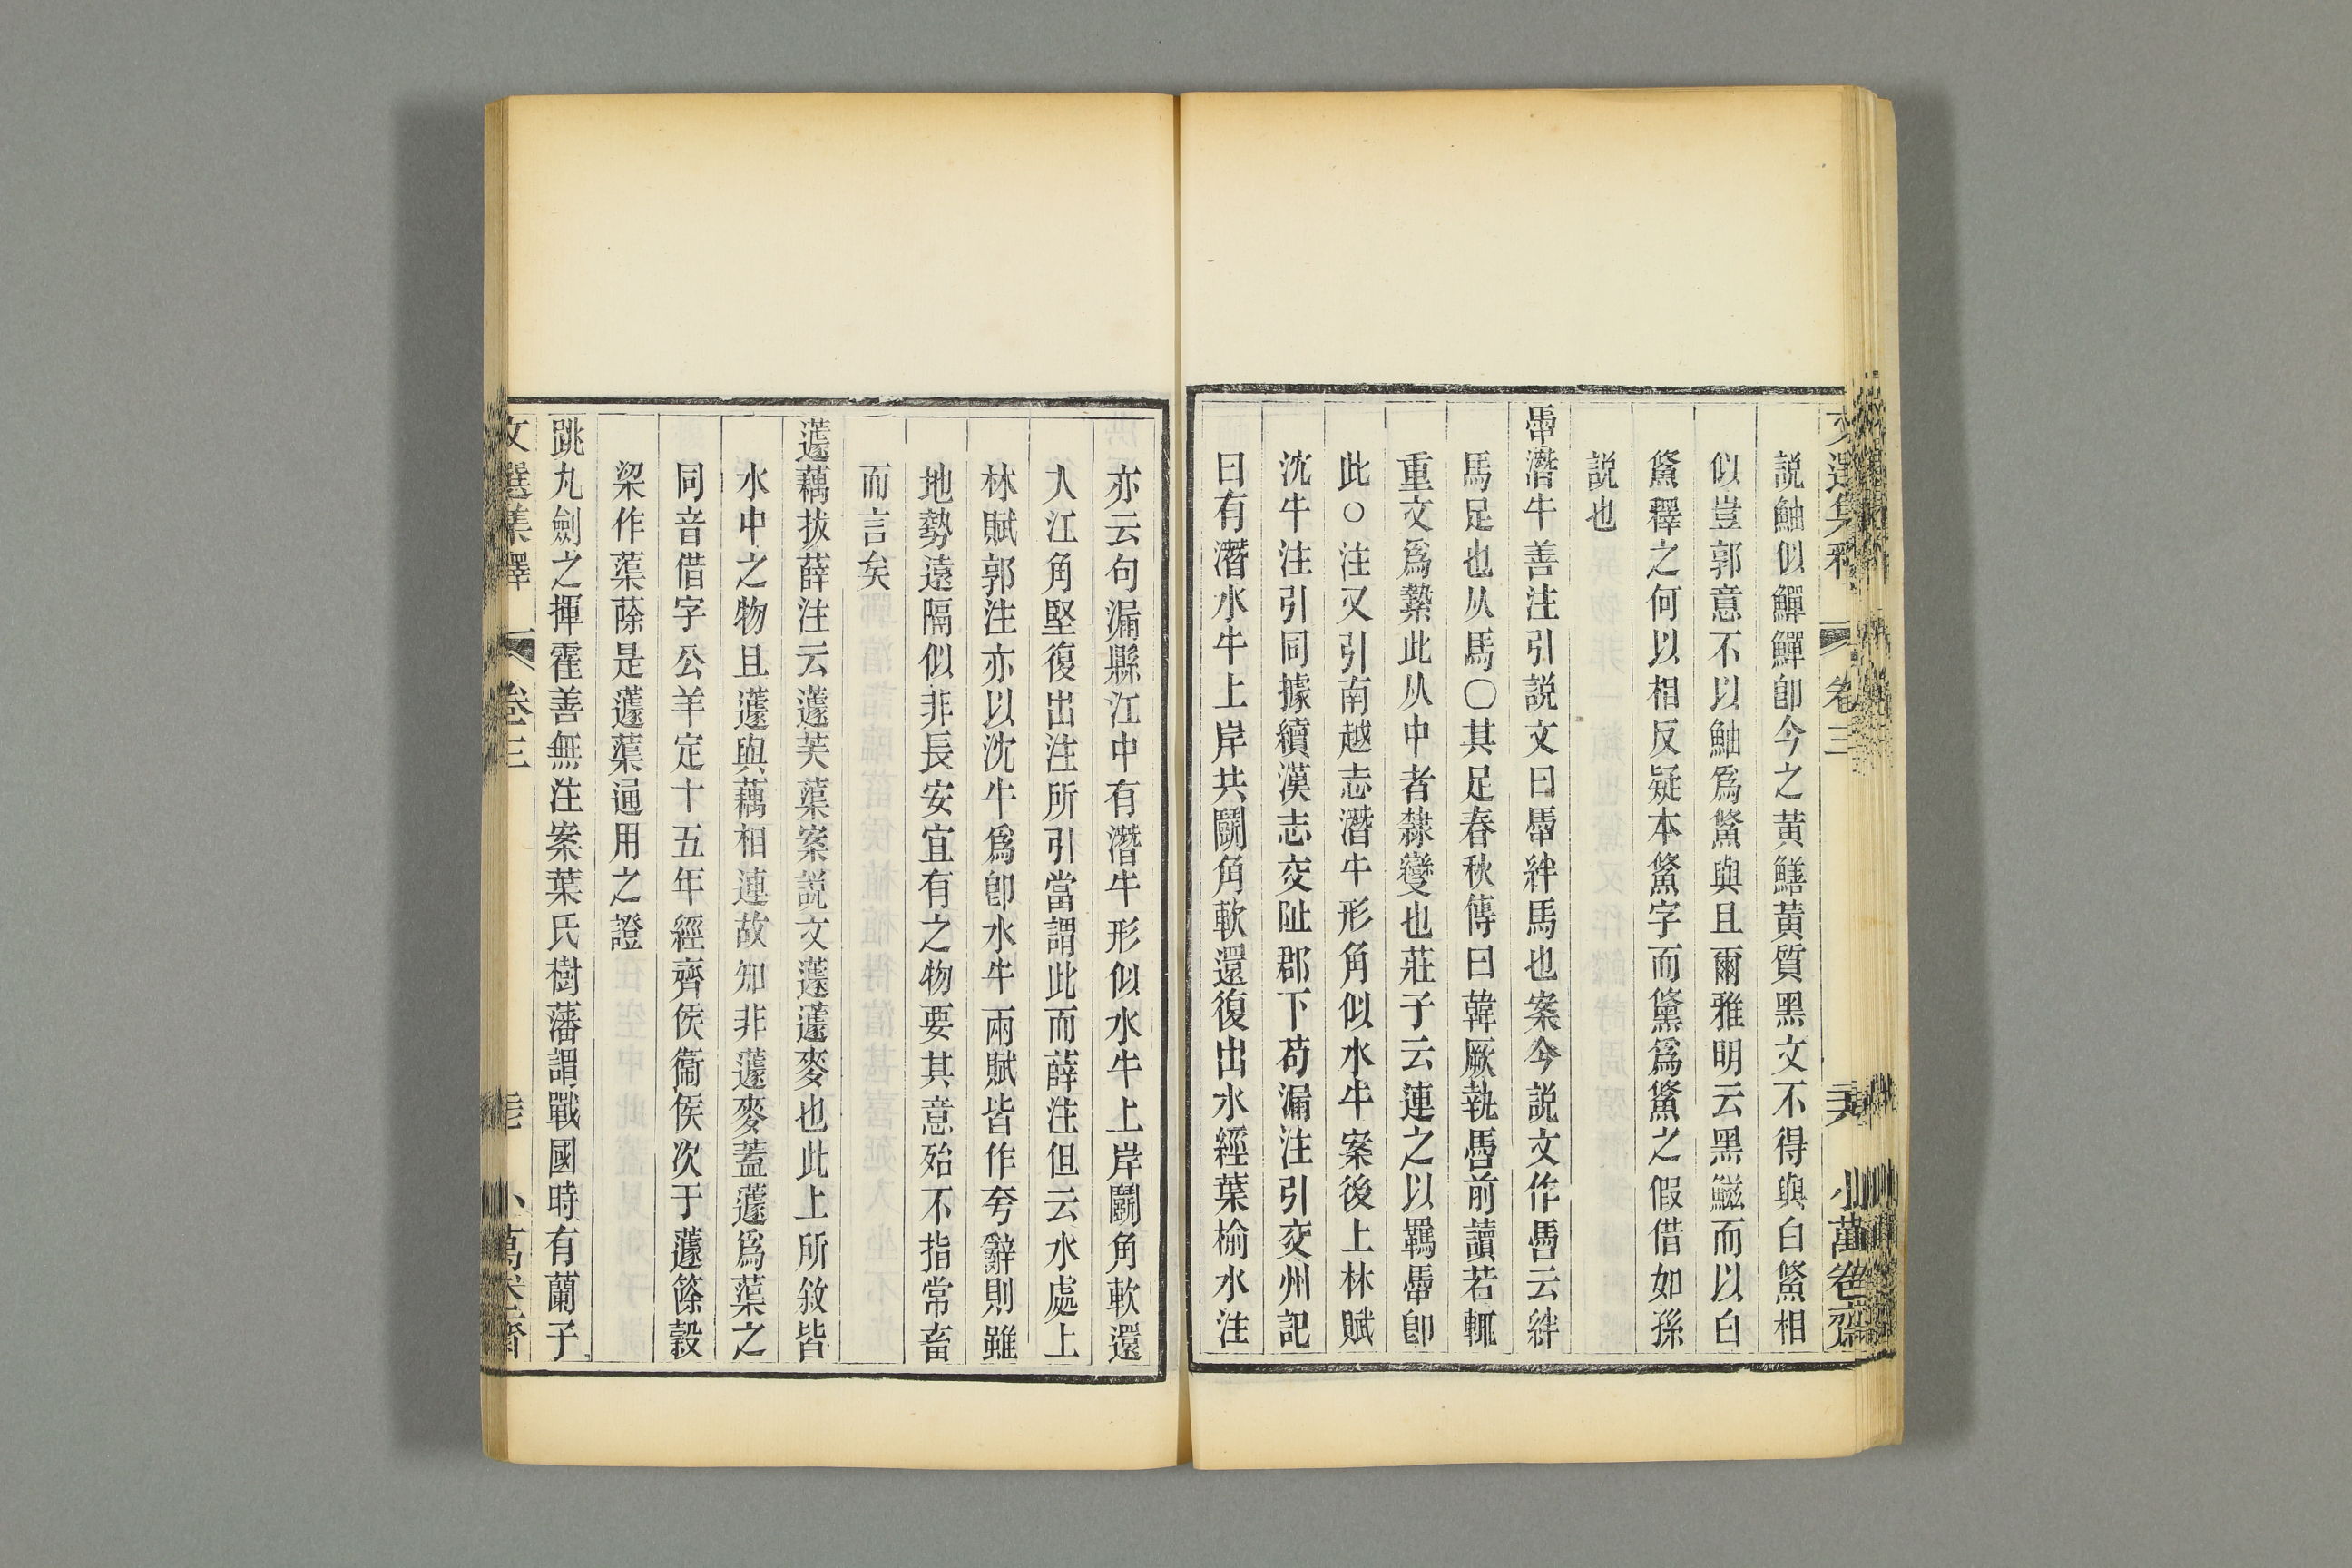 文選集釋 卷三 小萬卷齋
説鮋似鱓鱓卽今之黃鱔黃質黑文不得與白鮆相
似豈郭意不以鮋爲鮆與且爾雅明云黑鰦而以白
鮆釋之何以相反疑本鮆字而黨爲鮆之假借如孫
説也
馽潛牛善注引説文曰馽絆馬也案今説文作馽云絆
馬足也从馬〇其足春秋傳曰韓厥執馽前讀若輒
重文爲縶此从中者隸變也莊子云連之以羈馽卽
此○注又引南越志潛牛形角似水牛案後上林賦
沈牛注引同據續漢志交阯郡下苟漏注引交州記
曰有潛水牛上岸共鬭角軟還復出水經葉榆水注
亦云句漏縣江中有潛牛形似水牛上岸鬭角軟還
入江角堅復出注所引當謂此而薛注但云水處上
林賦郭注亦以沈牛爲卽水牛兩賦皆作夸辭則雖
地勢遠隔似非長安宜有之物要其意殆不指常畜
而言矣
蘧藕拔薛注云蘧芙蕖案説文蘧蘧麥也此上所敘皆
水中之物且蘧與藕相連故知非蘧麥蓋蘧爲蕖之
同音借字公羊定十五年經齊侯衞侯次于蘧篨穀
梁作蕖蒢是蘧蕖通用之證
跳丸劍之揮霍善無注案葉氏樹藩謂戰國時有蘭子
文選集釋 卷三 小萬卷齋